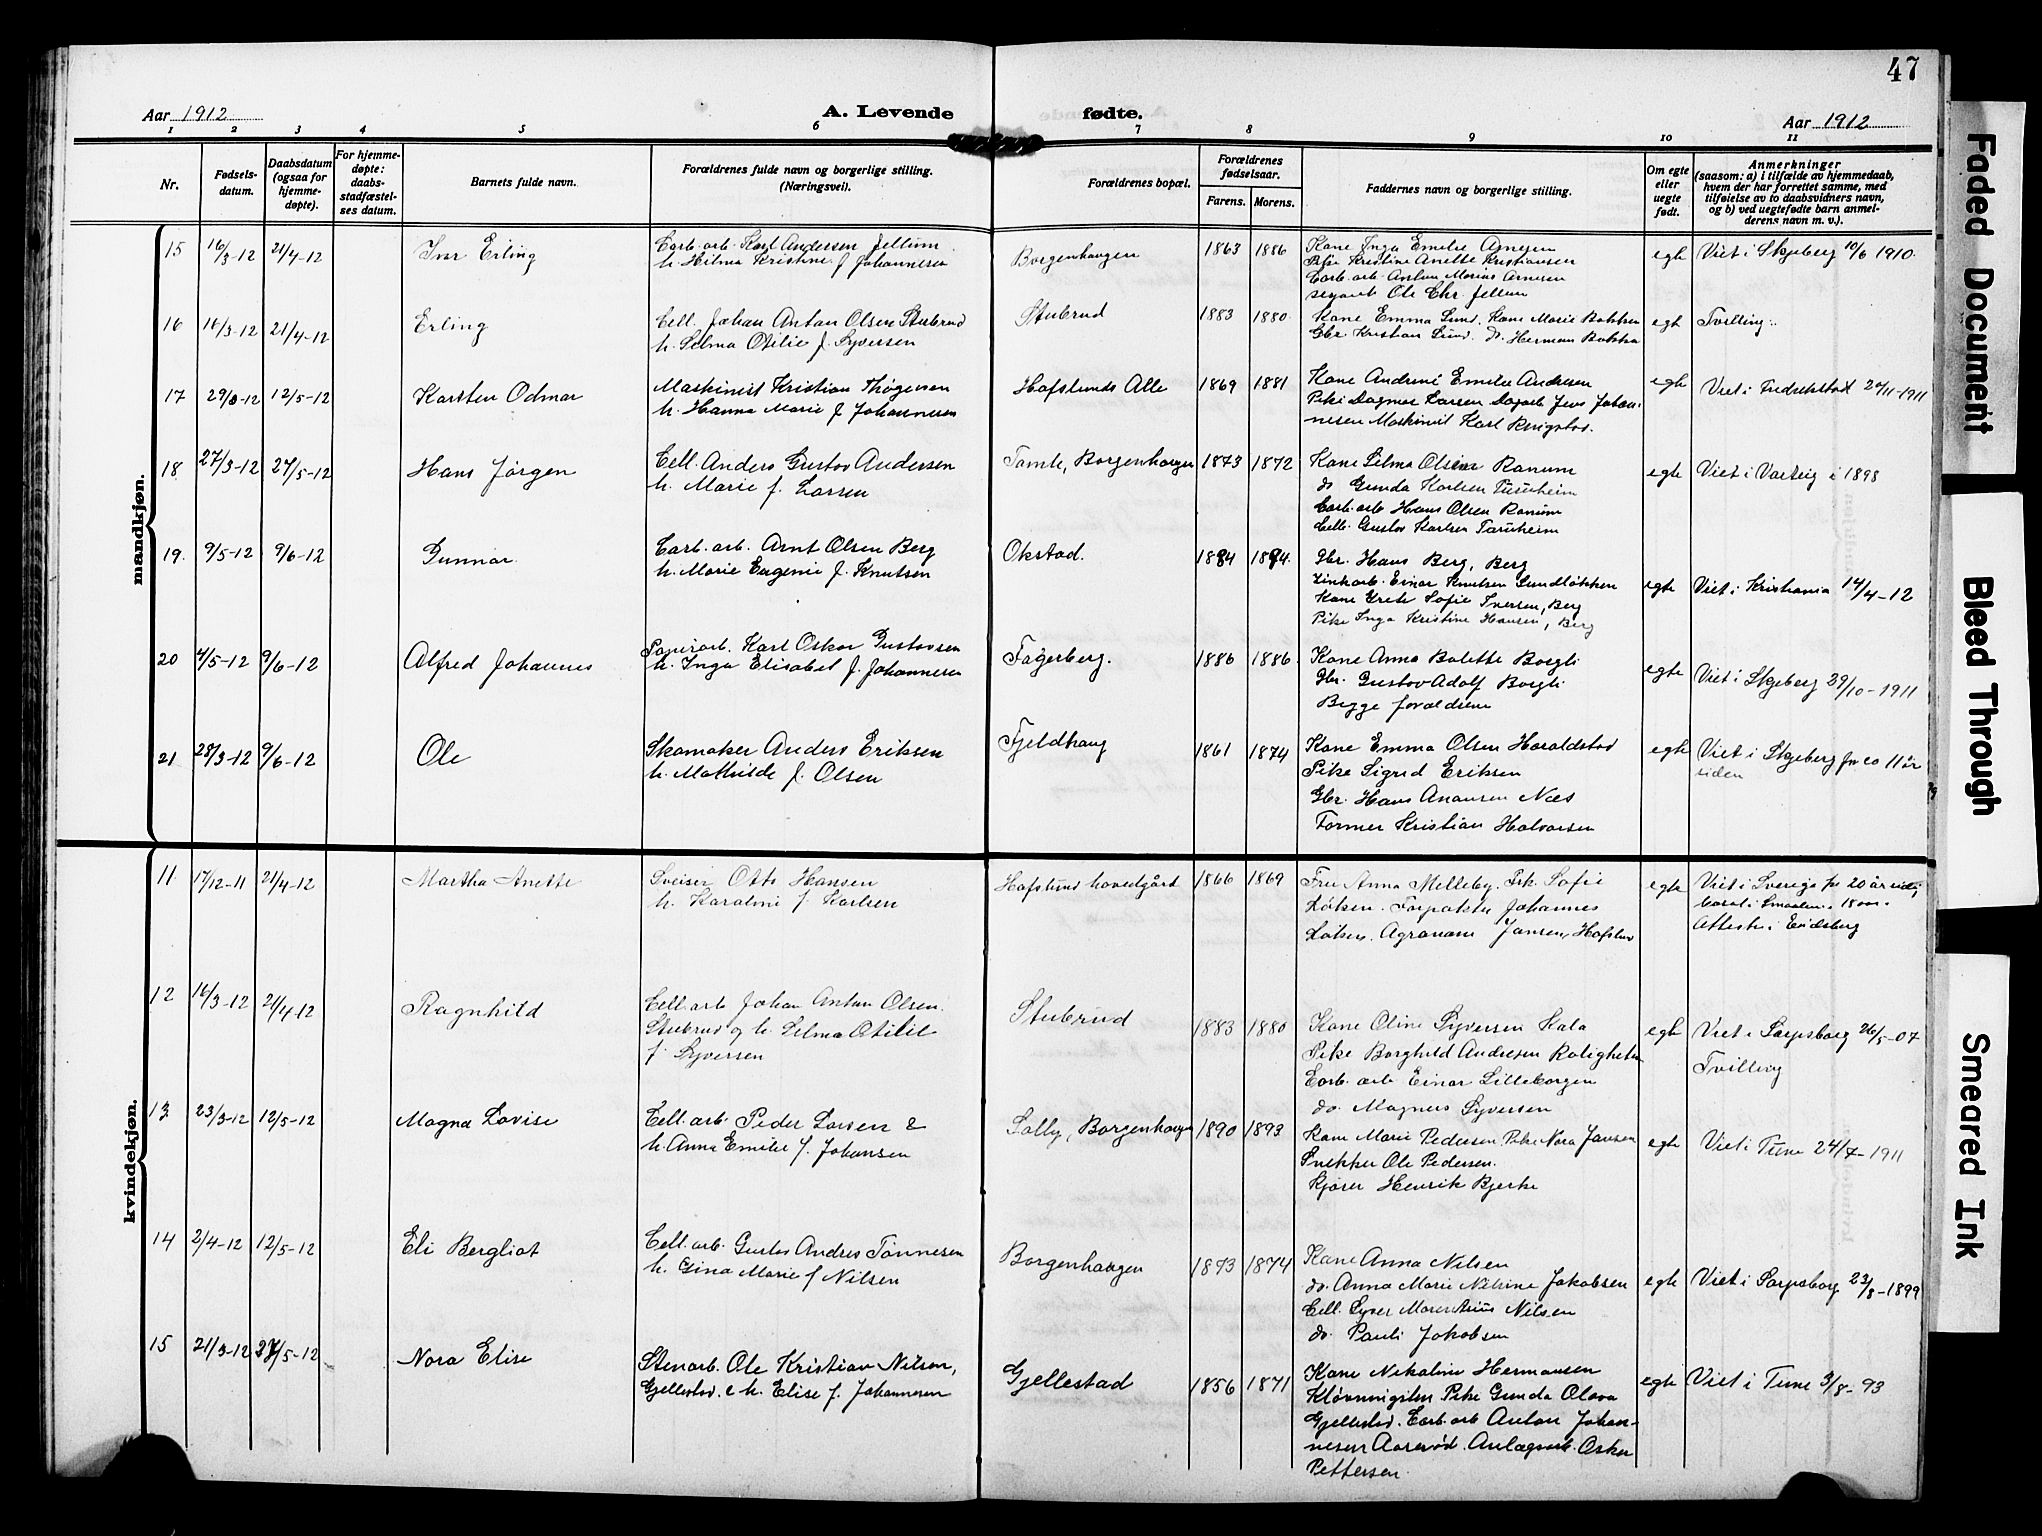 47
Aar 1912 A. Levende fødte. Aar 1912
1 2 3 4 5 6 7 8 9 10 11
Nr.
Fødsels-
datum.
Daabsdatum
(ogsaa for
hjemme-
døpte).
For hjemme-
døpte:
daabs-
stadfæstel-
ses datum.
Barnets fulde navn.
Forældrenes fulde navn og borgerlige stilling.
(Næringsvei).
Forældrenes bopæl.
Forældrenes
fødselsaar.
Farens. Morens.
Faddernes navn og borgerlige stilling.
Om egte
eller
uegte
født.
Anmerkninger
(saasom: a) i tilfælde av hjemmedaab,
hvem der har forrettet samme, med
tilføielse av to daabsvidners navn,
og b) ved uegtefødte barn anmel-
derens navn m. v.).
mandkjøn.
15 16/3-12 21/4-12 Ivar Erling
Carb. arb. Karl Andersen Jellum
h. Hilma Kristine f. Johannesen
Borgenhaugen 1863 1886
Kone Inga Emilie Arnesen
Pike Kristine Anette Kristiansen
Carb. arb. Anton Marius Arnesen
Ole Chr. Jellum
egte Viet i Skjeberg 10/6 1910.
16 16/3-12 21/4-12 Erling
Cell. Johan Anton Olsen Stubrud
h. Selma Otilie f. Syversen
Stubrud 1883 1880
Kone Emma Lund. Kone Marie
Gbr. Kristian Lund. do. Herman
egte Tvilling.
17 29/3-12 12/5-12 Karsten Odmar
Maskinist Kristian Thøgersen
h. Hanna Marie f. Johannesen
Hafslunds Alle 1869 1881
Kone Andrine Emilie Andersen
Pike Dagmar Larsen Dagarb. Jens Johan-
nesen Maskinist Karl Ringstad.
egte Viet i Fredrikstad 29/11-1911
18 27/3-12 27/5-12 Hans Jørgen
Cell. Anders Gustav Andersen
h. Marie f. Larsen
Tomte, Borgenhaugen 1873 1872
Kone Selma Olsen Ranum
do Gunda Karlsen Turuheim
Carb. arb. Hans Olsen Ranum
Cell. Gustav Karlsen Taruheim
egte Viet i Varteig i 1898
19. 9/5-12 9/6-12 Gunnar.
Carb. arb. Arnt Olsen Berg
h. Marie Eugenie f. Knutsen
Okstad. 1884 1894.
Gbr. Hans Berg, Berg
Zinkarb. Einar Knutsen Sundløkken
Kone Grete Sofie Iversen, Berg
Pike Inga Kristine Hansen, Berg
egte Viet i Kristiania 14/4-12
20 4/5-12 9/6-12 Alfred Johannes
Papirarb. Karl Oskar Gustavsen
h. Inga Elisabet f. Johannesen
Fagerberg. 1886 1886.
Kone Anna Bolette Borgli
Gbr. Gustav Adolf Borgli
Begge forældrene
egte Viet i Skjeberg 29/10-1911
21 28/3-12 9/6-12 Ole
Skomaker Anders Eriksen
h. Mathilde f. Olsen
Fjeldhaug 1861 1874
Kone Emma Olsen Haraldstad
Pike Sigrid Eriksen
Gbr. Hans Anansen Næs
Former Kristian Halvorsen
egte Viet i Skjeberg for ca 11 år
siden
kvindekjøn.
11 17/12-11 21/4-12 Martha Anette
Sveiser Otto Hansen
h. Karoline f. Karlsen
Hafslund hovedgård 1866 1869
Fru Anna Melleby. Frk. Sofie
Løken. Forpakter Johannes
Løken. Agronom Jansen, Hafslund
egte Viet i Sverige for 20 år siden,
i Smaalen. 18 aar.
Attest i Eidsberg
12 16/3-12 21/4-12 Ragnhild
Cell. arb. Johan Anton Olsen
Stubrud og h. Selma Otilie
f. Syversen
Stubrud 1883 1880
Kone Oline Syversen Kala
Pike Borghild Andresen Roligheten
Carb. arb. Einar Lilleborgen
do. Magnus Syversen
egte Viet i Sarpsborg 26/5-07
Tvilling
13 23/3-12 12/5-12 Magna Lovise
Cell. arb. Peder Larsen &
h. Anna Emilie f. Johansen
Solly, Borgenhaugen 1890 1893
Kone Marie Pedersen. Pike Nora Jansen
Snekker Ole Pedersen.
Kjører Henrik Bjerke
egte Viet i Tune 24/7-1911
14 2/4-12 12/5-12 Eli Bergliot
Cell. arb. Gustav Andres Tønnesen
h. Gina Marie f Nilsen
Borgenhaugen 1873 1874
Kone Anna Nilsen
do. Anna Marie Nilsine Jakobsen
Cell. Syver Marentius Nilsen
do. Pauli Jakobsen
egte Viet i Sarpsborg 23/8-1899
15 21/3-12 27/5-12 Nora Elise
Stenarb. Ole Kristian Nilsen,
Gjellestad. & h. Elise f. Johannesen
Gjellestad 1856 1871
Kone Nikoline Hermansen
Kløvningsten Pike Gunda Olava
Gjellestad. Carb. arb. Anton Johan-
nesen Aarsrød. Anlægsarb. Oskar
Pettersen.
egte Viet i Tune 3/8-93
Faded Document
Bleed Through
Smeared Ink